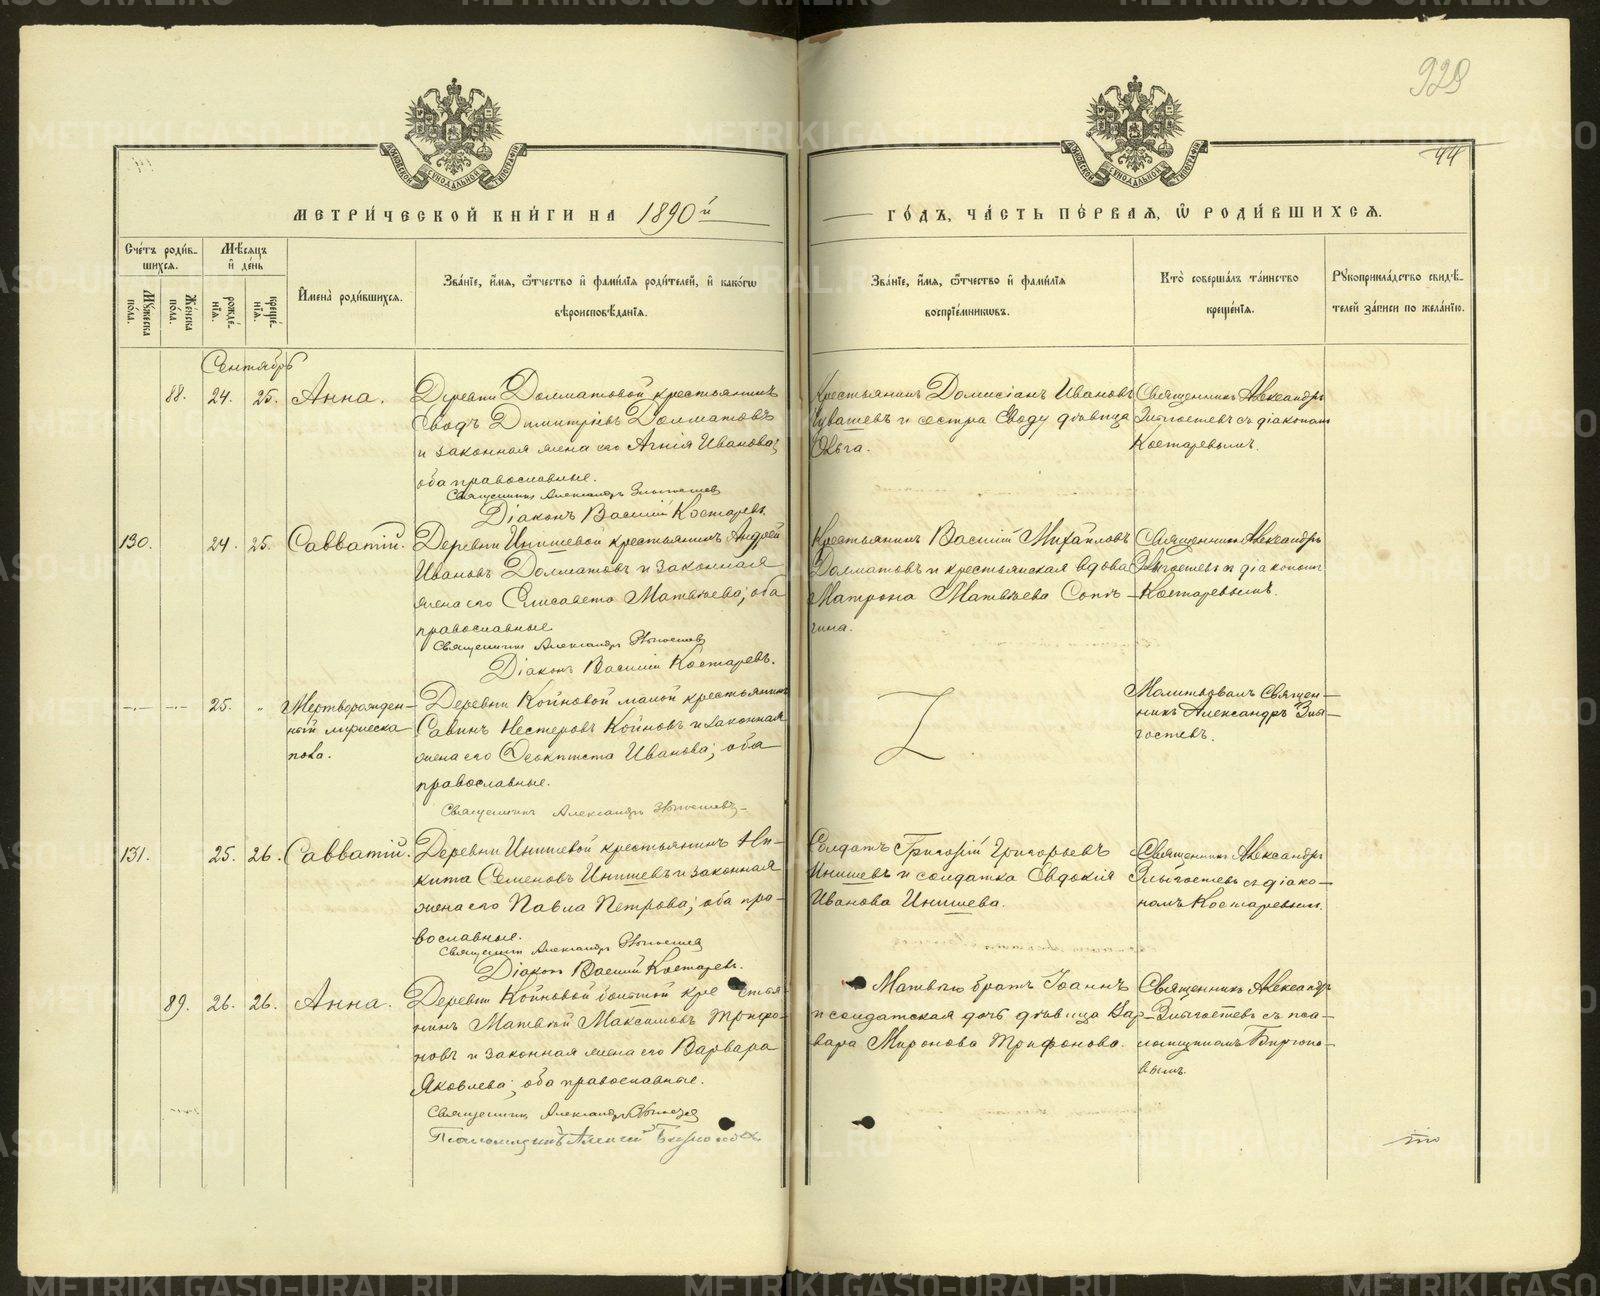 928
44
МЕТРИ́ЧЕСКОЙ КНИ́ГИ НА 1890й
ГО́ДЪ, ЧА́СТЬ ПЕ́РВАЯ, Ѡ РОДИ́ВШИХСЯ.
Сче́тъ роди́в-
шихся.
Мѣ́сяцъ
и́ де́нь
Му́жеска
по́ла.
Же́нска
по́ла.
рожде́-
нїя.
креще́-
нїя.
И҆мена̀ роди́вшихся.
Зва́нїе, и҆́мя, ѻ҆́тчество и҆ фами́лїя роди́телей, и҆ како́гѡ
вѣроисповѣ́данїя.
Зва́нїе, и҆́мя, ѻ҆́тчество и҆ фами́лїя
воспрїе́мникѡвъ.
Кто̀ соверша́лъ та́инство
креще́нїя.
Рꙋкоприкла́дство свидѣ́-
телей за́писи по жела́нїю.
Сентябрь
88. 24. 25. Анна.
Деревни Долматовой крестьянинъ
Димитріевъ Долматовъ
и законная жена его Агнія Иванова;
оба православные.
Священникъ Александръ
Діаконъ Василій Костаревъ
Крестьянинъ Домисіанъ Ивановъ
Чувашевъ и сестра дѣвица
Ольга.
Священникъ Александръ
съ діакономъ
Костаревымъ.
130. 24. 25. Савватій.
Деревни Инишевой крестьянинъ Андрей
Ивановъ Долматовъ и законная
жена его Елисавета Матвѣева; оба
православные
Священникъ Александръ
Діаконъ Василій Костаревъ.
Крестьянинъ Василій Михайловъ
Долматовъ и крестьянская вдова
Матрона Матвѣева
Священникъ Александръ
съ діакономъ
Костаревымъ.
25. „ Мертворожден-
ный мужеска
пола.
Деревни Койновой малой крестьянинъ
Савинъ Нестеровъ Койновъ и законная
жена его Ѳеоктиста Иванова; оба
православные.
Священникъ Александръ
Молитвовалъ Священ-
никъ Александръ Злы-
гостевъ.
131. 25. 26. Савватій.
Деревни Инишевой крестьянинъ Ни-
кита Семеновъ Инишевъ и законная
жена его Павла Петрова; оба пра-
вославные.
Священникъ Александръ
Діаконъ Василій Костаревъ.
Солдатъ Григорій Григорьевъ
Инишевъ и солдатка Евдокія
Иванова Инишева.
Священникъ Александръ
Злыгостевъ съ діако-
номъ Костаревымъ.
89. 26. 26. Анна.
Деревни Койновой большой крестья-
нинъ Матвей Максимовъ Трифо-
новъ и законная жена его Варвара
Яковлева; оба православные.
Священникъ Александръ
Псаломщикъ Алексій
Матвѣю братъ Іоаннъ
и солдатская дочь дѣвица Вар-
вара Миронова Трифонова.
Священникъ Александръ
Злыгостевъ съ пса-
ломщикомъ
METRIKI.GASO-URAL.RU